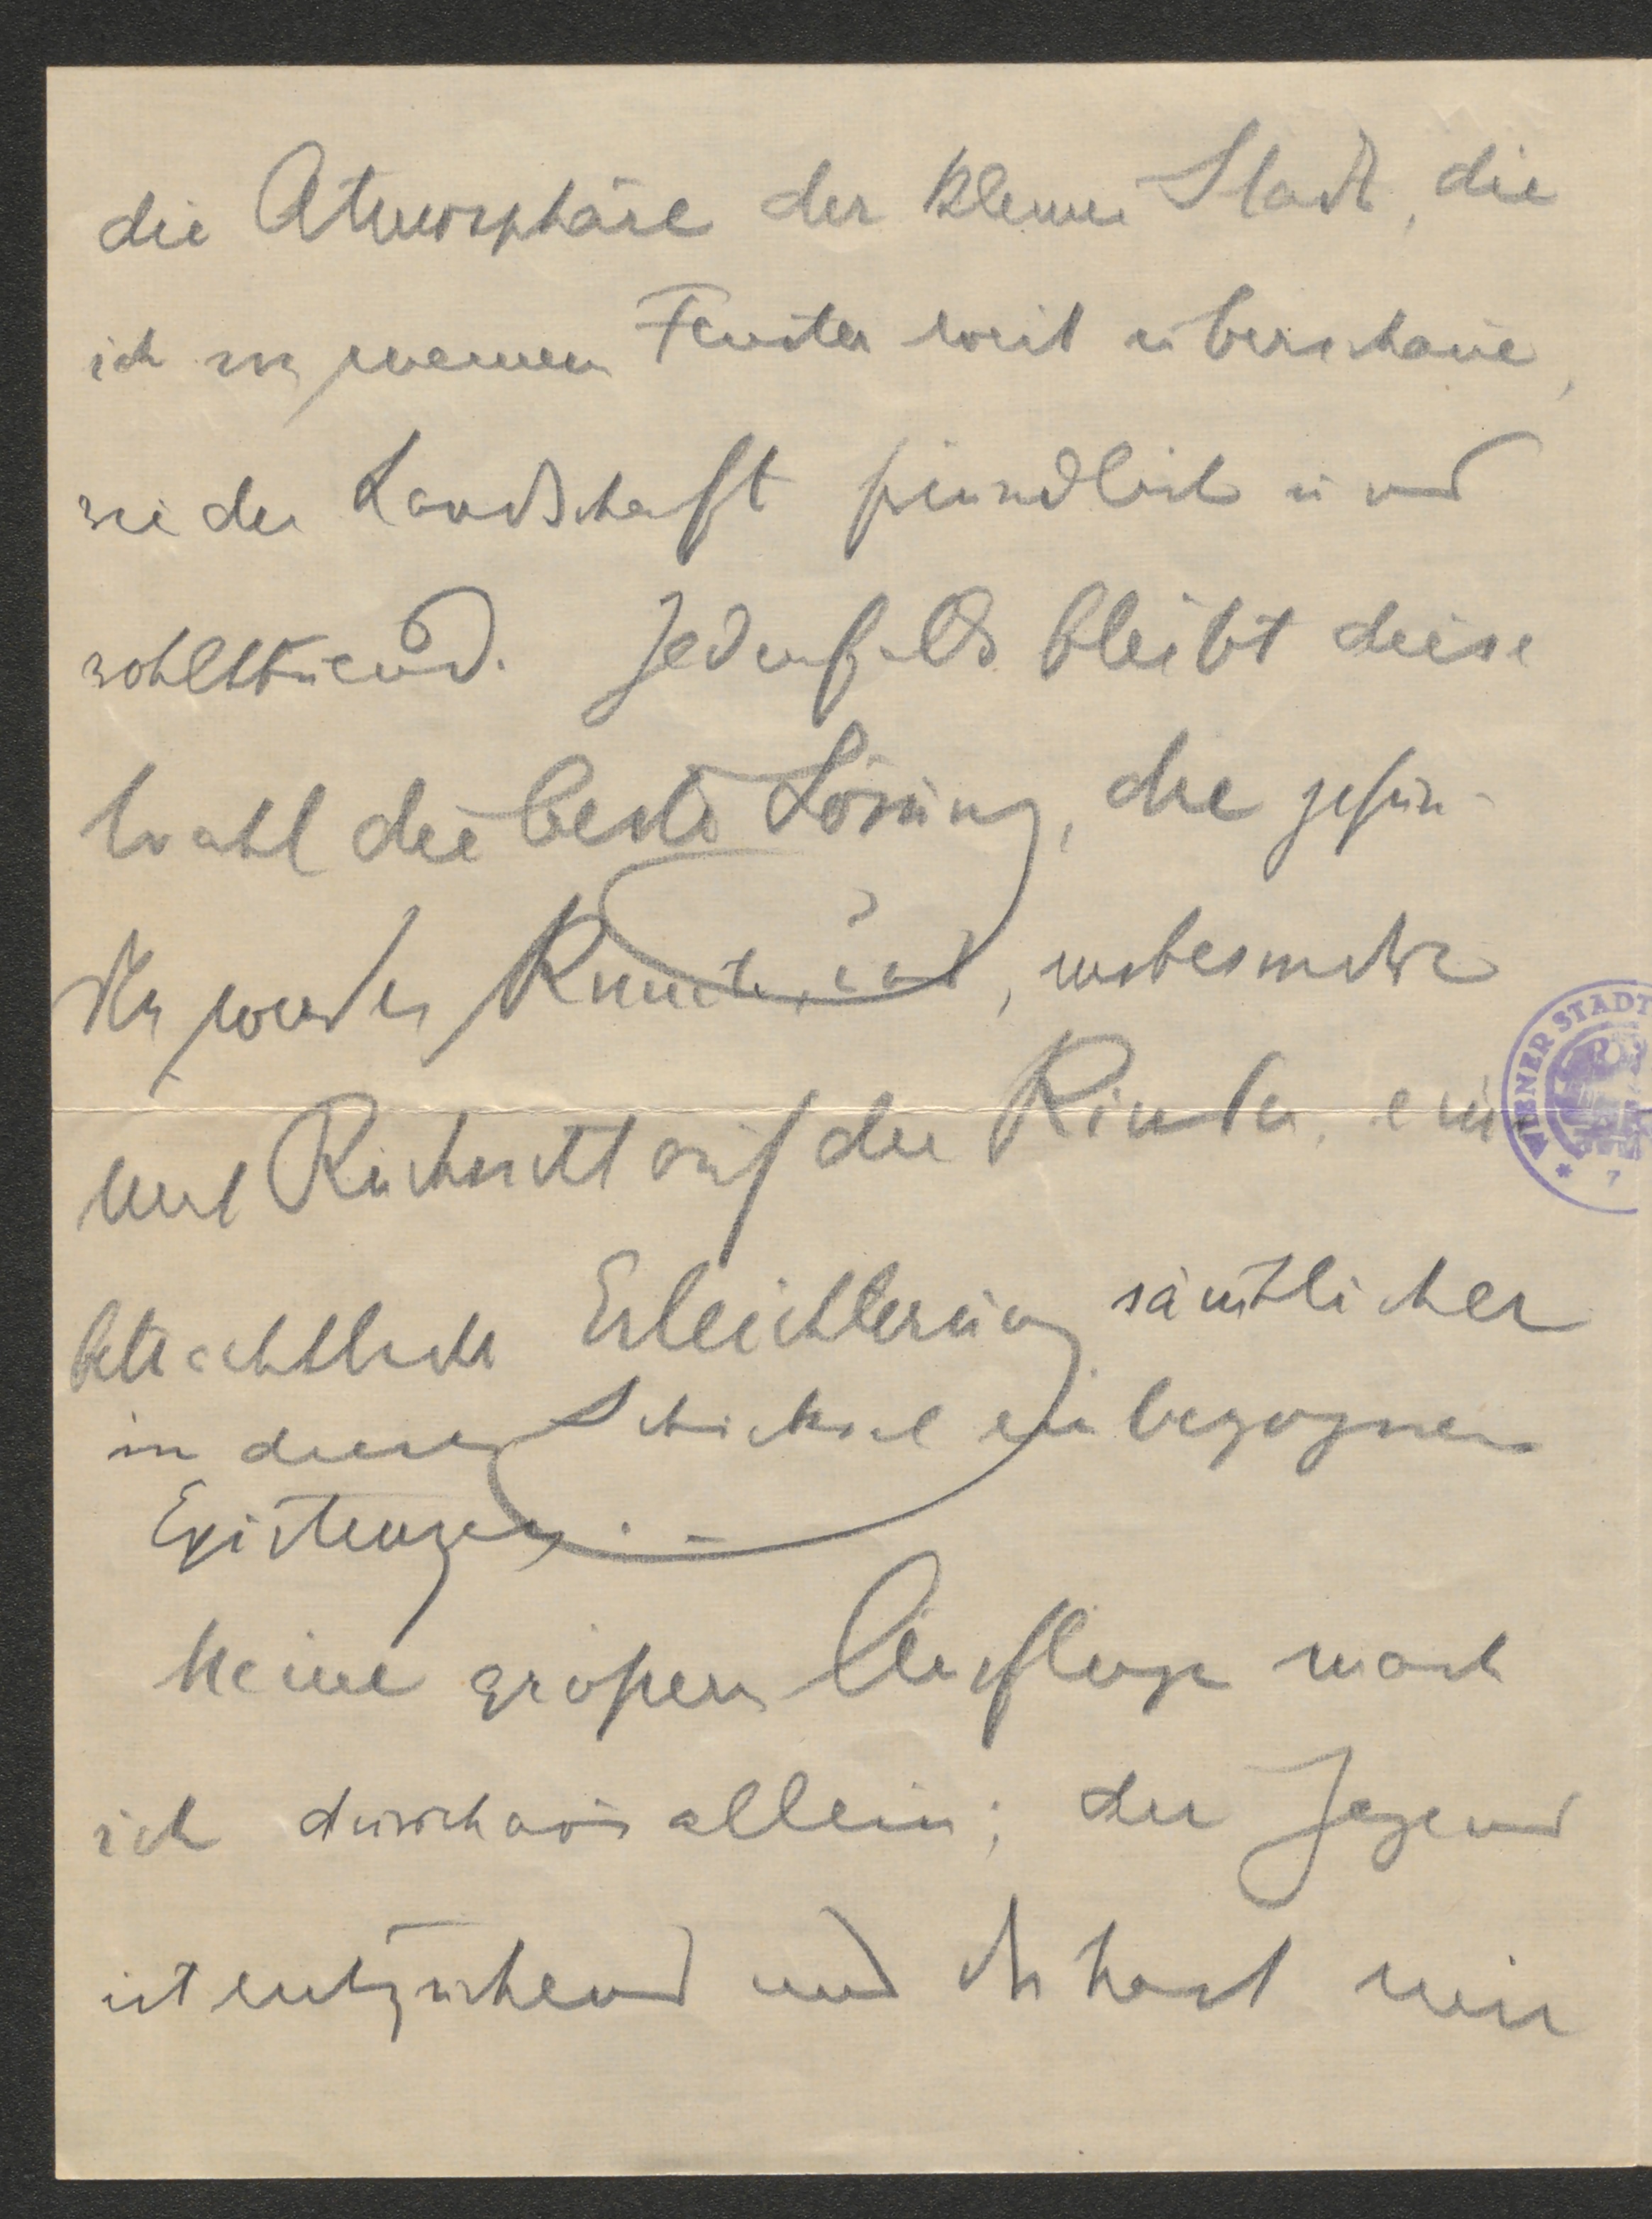 die Atmosphäre der kleinen Stadt, die
ich von meinem Fenster weit überschaue,
wie der Landschaft freundlich und
wohltuend. Jedenfalls bleibt diese
Wahl die beste Lösung, die gefun-
den werden konnte, und, insbesondere
mit Rücksicht auf die Kinder, eine
beträchtliche Erleichterung sämtlicher
in dieses Schicksal einbezogenen
Existenzen. –
Meine größern Ausflüge mach
ich durchaus allein; die Gegend
ist entzückend und du hast mir
WIENER STADT
7